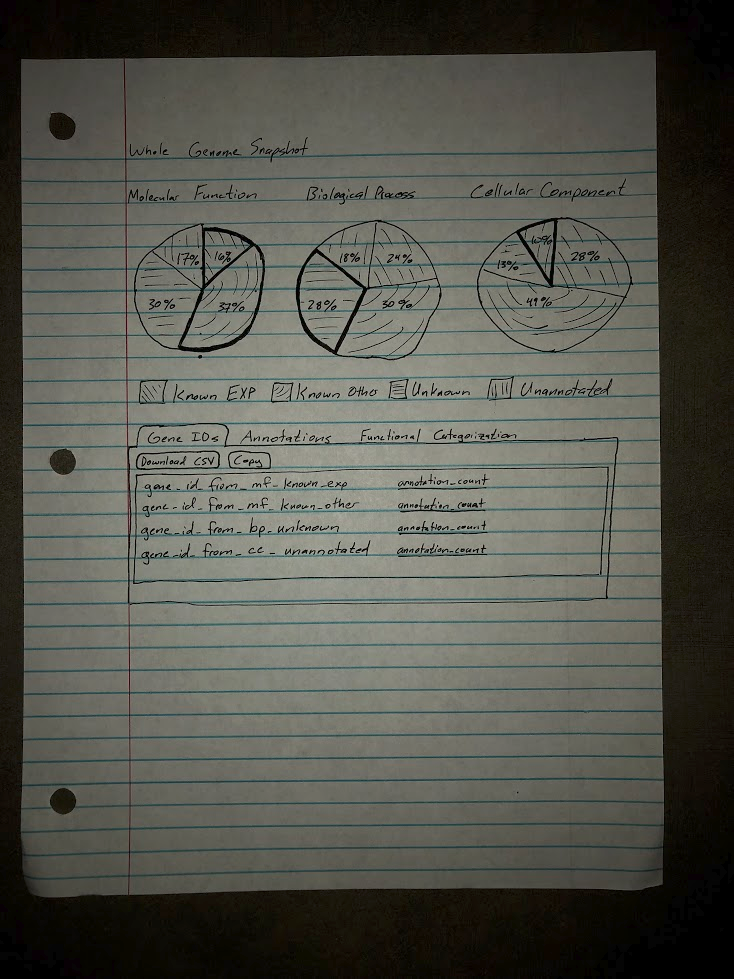 Whole Genome Snapshot
Molecular Function Biological Process Cellular Component
17% 16% 30% 37%
18% 24% 28% 30%
10% 28% 13% 49%
Known EXP Known Other Unknown Unannotated
Gene IDs Annotations Functional Categorization
Download CSV Copy
gene_id_from_mf_known_exp annotation_count
gene_id_from_mf_known_other annotation_count
gene_id_from_bp_unknown annotation_count
gene_id_from_cc_unannotated annotation_count